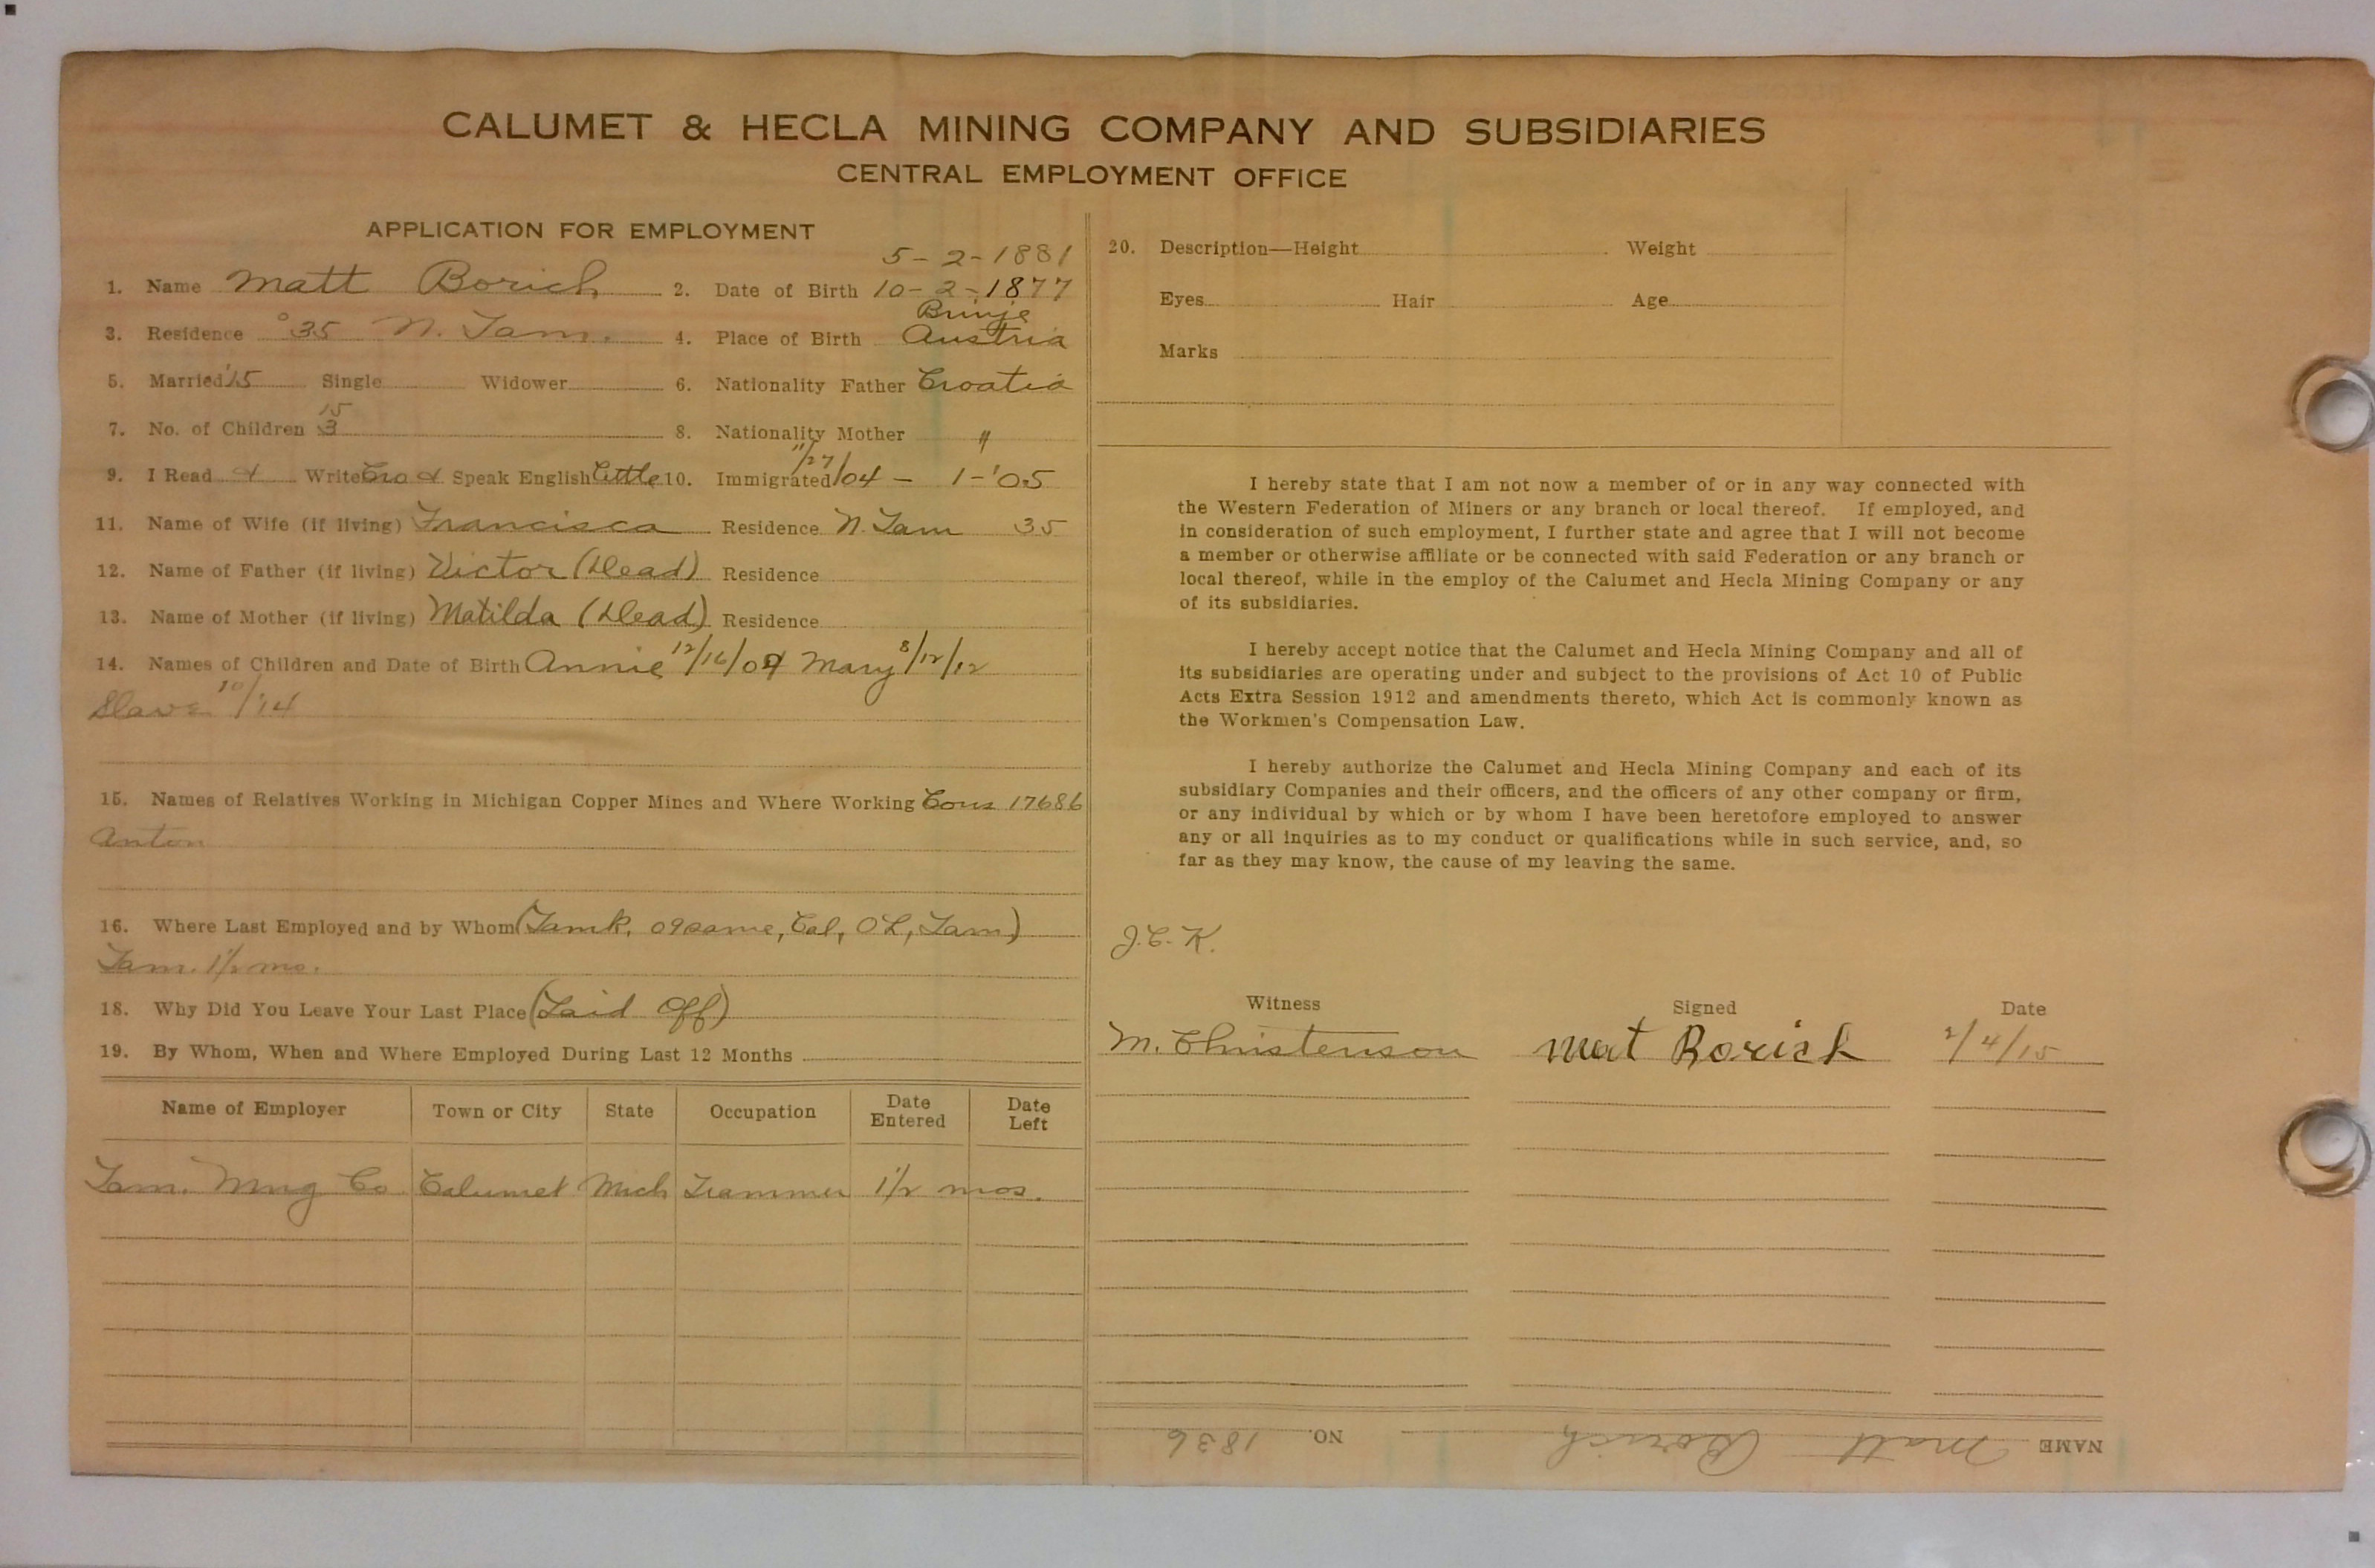 CALUMET & HECLA MINING COMPANY AND SUBSIDIARIES
CENTRAL EMPLOYMENT OFFICE
APPLICATION FOR EMPLOYMENT
5-2-1881
1. Name Matt Borich 2. Date of Birth 10-2-1877
3. Residence 35 N. Tam. 4. Place of Birth Austria
5. Married '15 Single Widower 6. Nationality Father Croatia
15
7. No. of Children 3 8. Nationality Mother "
9. I Read & Write Cro & Speak English Little 10. Immigrated 11/27/04 - 1-'05
11. Name of Wife (if living) Francisca Residence N. Tam 35
12. Name of Father (if living) Victor (Dead) Residence
13. Name of Mother (if living) Matilda (Dead) Residence
14. Names of Children and Date of Birth Annie 12/16/09 Mary 8/12/12
10/'14
15. Names of Relatives Working in Michigan Copper Mines and Where Working Cous 17686
Anton
16. Where Last Employed and by Whom (Tamk, 09 same, Cal, OL, Tam)
Tam. 1 1/2 mo.
18. Why Did You Leave Your Last Place (Laid Off)
19. By Whom, When and Where Employed During Last 12 Months
Name of Employer Town or City State Occupation Date Entered Date Left
Tam. Mng Co Calumet Mich Trammer 1 1/2 mos.
20. Description—Height Weight
Eyes Hair Age
Marks
I hereby state that I am not now a member of or in any way connected with
the Western Federation of Miners or any branch or local thereof. If employed, and
in consideration of such employment, I further state and agree that I will not become
a member or otherwise affiliate or be connected with said Federation or any branch or
local thereof, while in the employ of the Calumet and Hecla Mining Company or any
of its subsidiaries.
I hereby accept notice that the Calumet and Hecla Mining Company and all of
its subsidiaries are operating under and subject to the provisions of Act 10 of Public
Acts Extra Session 1912 and amendments thereto, which Act is commonly known as
the Workmen's Compensation Law.
I hereby authorize the Calumet and Hecla Mining Company and each of its
subsidiary Companies and their officers, and the officers of any other company or firm,
or any individual by which or by whom I have been heretofore employed to answer
any or all inquiries as to my conduct or qualifications while in such service, and, so
far as they may know, the cause of my leaving the same.
J.C.K.
Witness Signed Date
M. Christenson Mat Borich 2/4/15
NAME Matt Borich NO. 1836